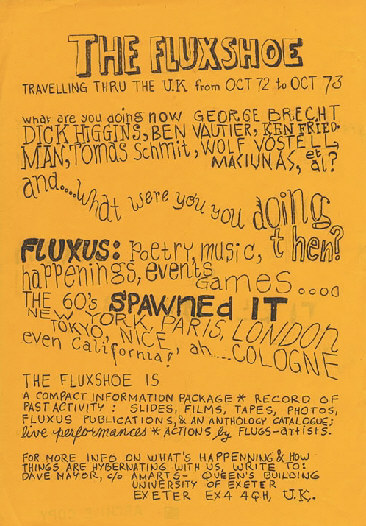 THE FLUXSHOE
TRAVELLING THRU THE U.K from OCT 72 to OCT 73
what are you doing now GEORGE BRECHT
DICK HIGGINS, BEN VAUTIER, KEN FRIED-
MAN, TOMAS SCHMIT, WOLF VOSTELL,
MACIUNAS, et al.?
and....what were you you doing
then?
FLUXUS: Poetry, music,
happenings, events
games.....
THE 60's SPAWNEd IT
NEW YORK, PARIS, LONDON
TOKYO, NICE
even California? ah....COLOGNE
THE FLUXSHOE IS
A COMPACT INFORMATION PACKAGE * RECORD OF
PAST ACTIVITY : SLIDES, FILMS, TAPES, PHOTOS,
FLUXUS PUBLICATIONS, & AN ANTHOLOGY CATALOGUE;
live performances * ACTIONS by FLUGS-artists.
FOR MORE INFO ON WHAT'S HAPPENNING & HOW
THINGS ARE HYBERNATING WITH US, WRITE TO:
DAVE MAYOR, c/o AMARTS- QUEEN'S BUILDING
UNIVERSITY OF EXETER
EXETER EX4 4QH, U.K.